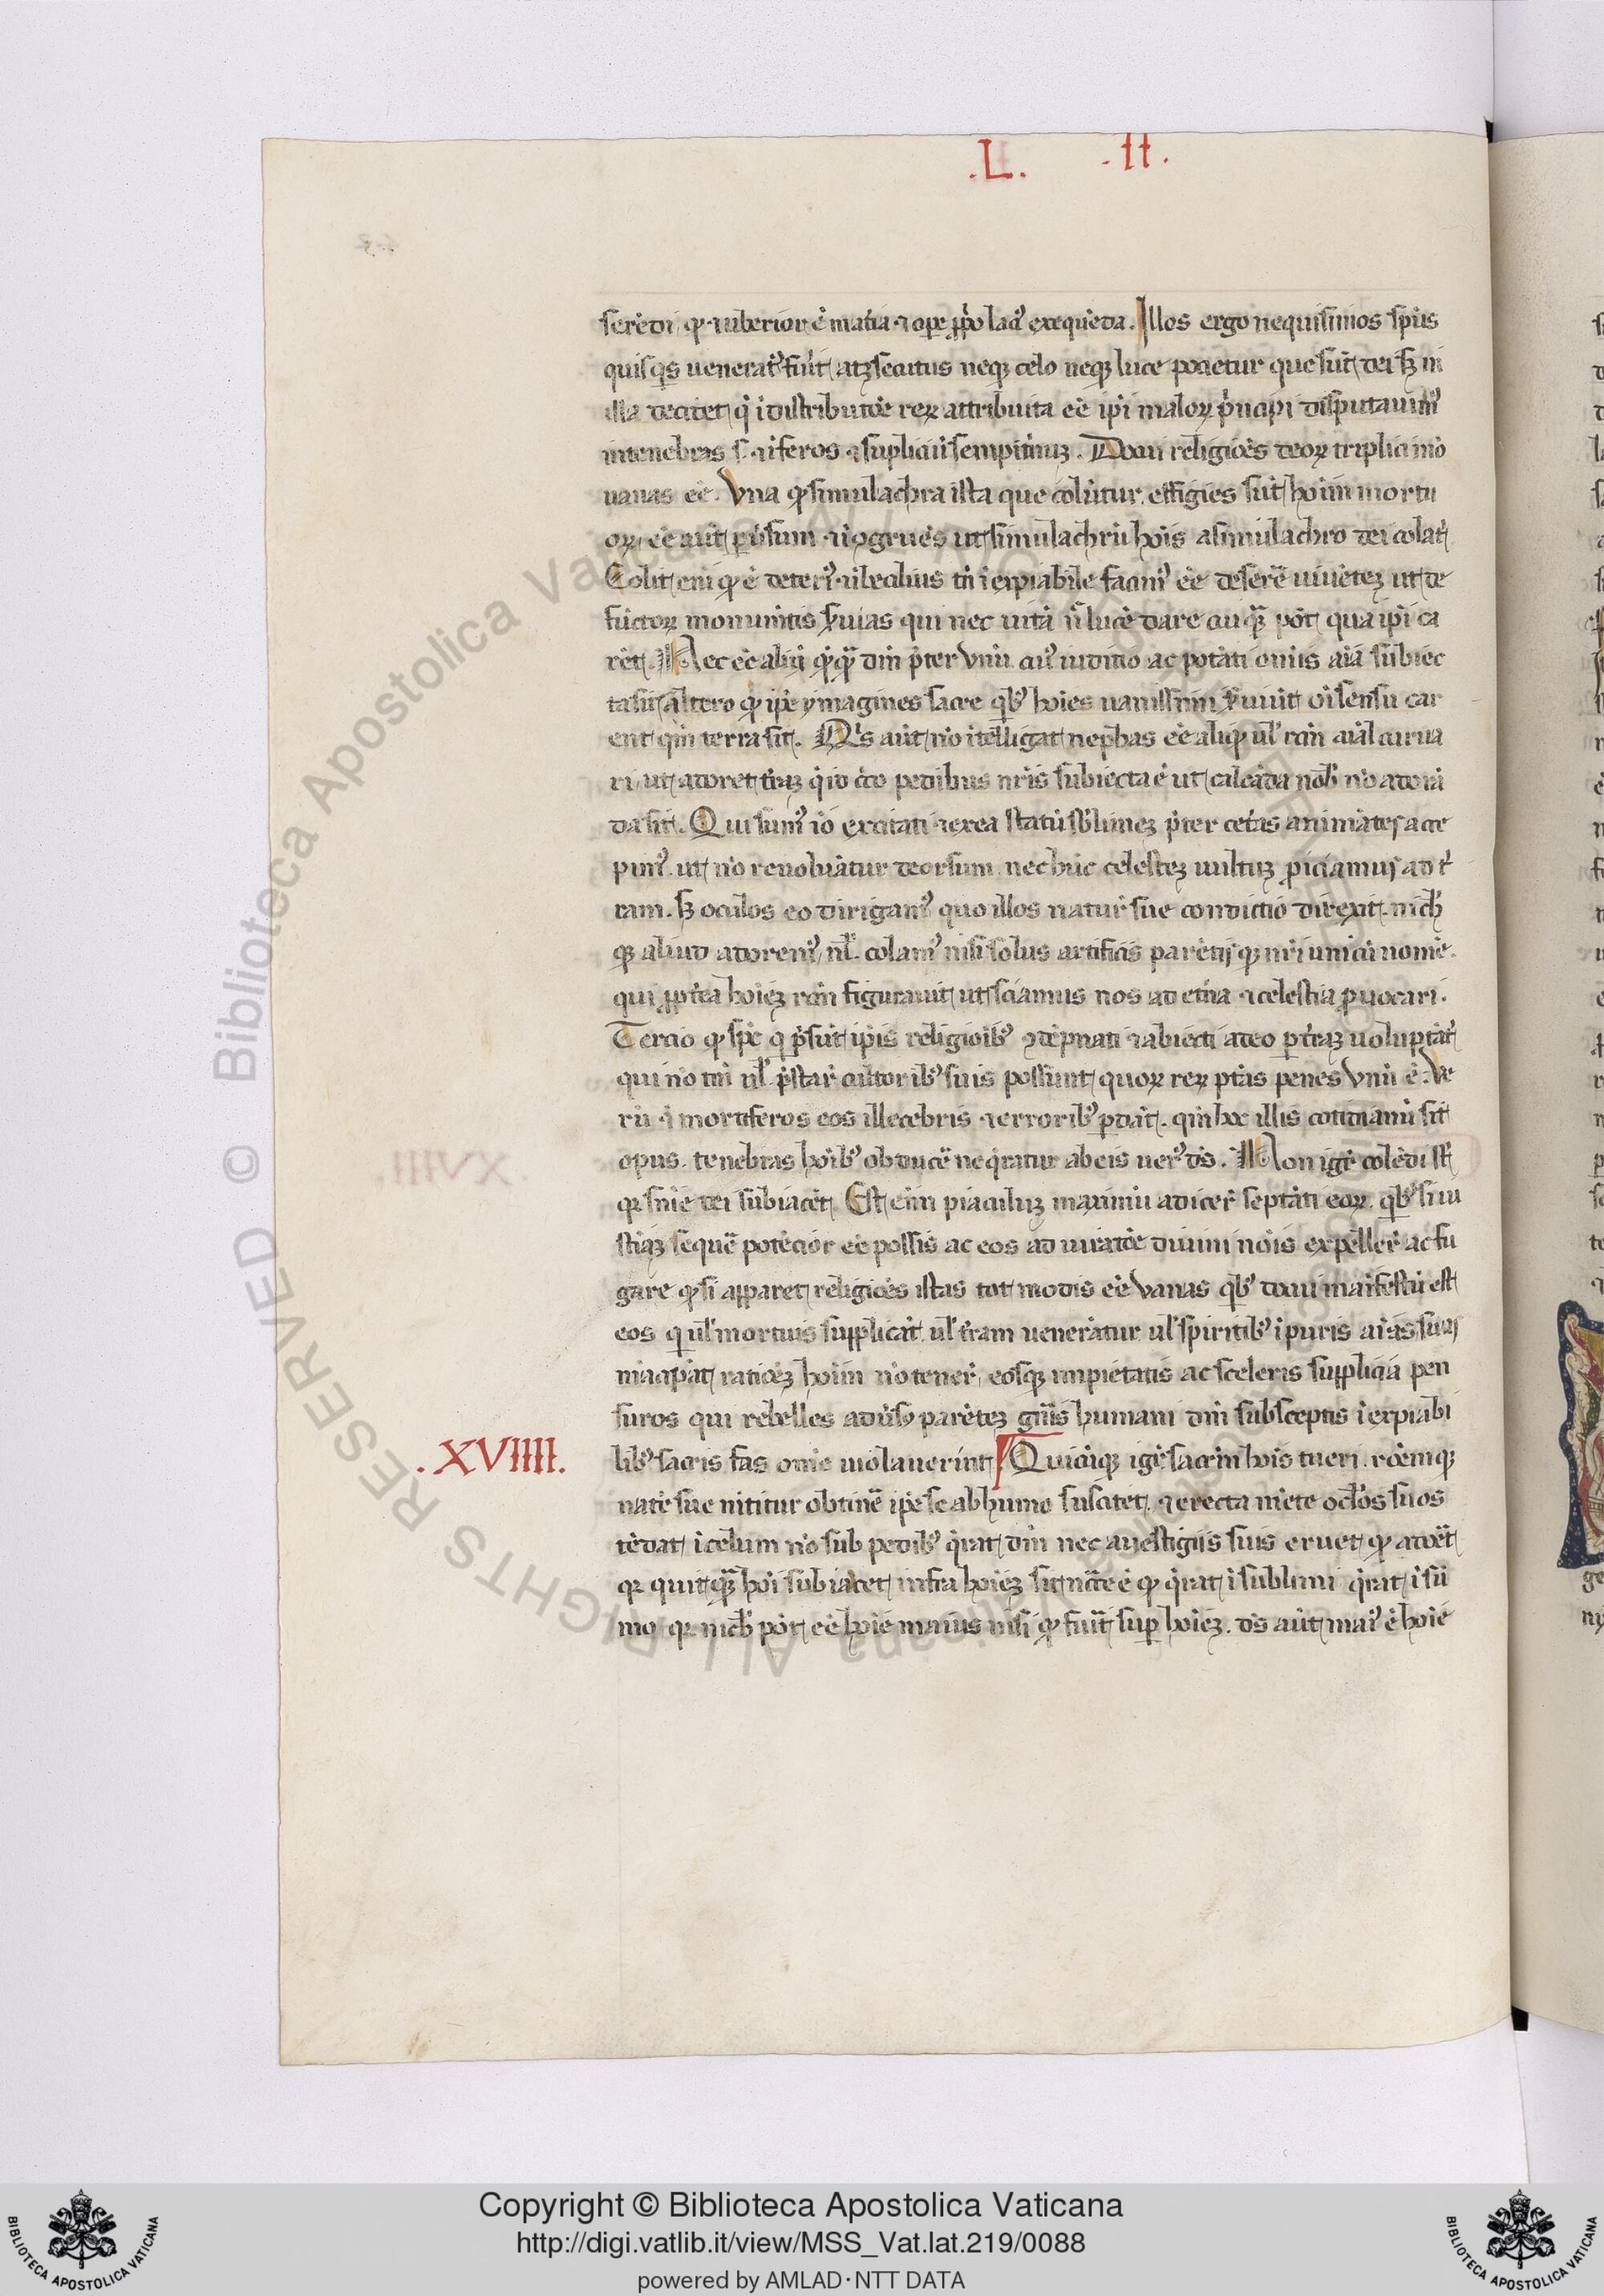 .L. .II.
serēdi qđ ⁊ uberior ē mat'ia ⁊ ope ꝓpo lacī exequēda. Illos ergo nequissimos sp̄us
quisq̄s uenerat' fūit atꝫ secutus neqꝫ celo neqꝫ luce pocietur que sūt dei sꝫ in
illa decidet q̄ ī distributōe reꝝ attributa ēē ip̄i maloꝝ p̄ncipi disputauim'
in tenebras s. ⁊ īferos ⁊ supliciū sempit'nuꝫ. Docui religiōēs deoꝝ triplici mō
uanas ēē. Vna qđ simulachra ista que colūtur effigies sūt hoīm mortu
oꝝ. ēē aūt puersum ⁊ īcōgruēs ut simulachrū hoīs a simulachro dei colat'
Colit enī qđ ē deteri' ⁊ ībecilius tū īexpiabile facin' ēē deserē uiuēteꝫ ut de
fūctoꝝ monumtis seruias qui nec uitā nec lucē dare cuiquā pōt qua ip̄i ca
rēt. Nec ēē aliū quēquā dm̄ p̄ter vnū cui' iuditio ac potati omīs aīa subiec
ta sit altero qđ ipē ymagines sacre qb' hoīes uanissimi seruiūt oī sensu car
ent qm̄ terra sit. Quis aūt nō ītelligat nephas ēē aliqđ ul' rcm̄ aīal curua
ri ut adoret t'raꝫ q̄ iō cīo pedibus nr̄is subiecta ē ut calcāda nob' nō adorā
da sit. Qui sum' iō excitati ⁊ erea statū sblimeꝫ p̄ter cet'as animātes acce
pim' ut nō reuoluātur deorsum nec hūc celesteꝫ uultuꝫ ꝓiciamus ad t'
ram. sꝫ oculos eo dirigam' quo illos natur' sue condictio direxit. nich'
qꝫ aliud adorem' nl' colam' nisi solus artificis parētisqꝫ nr̄i unici nomē.
qui ꝓpt'ea hoīeꝫ rcm̄ figurauit ut sciamus nos ad et'na ⁊ celestia ꝓuocari.
Tercio qđ sp̄c q p̄sūt ip̄is religioīb' ꝯdēpnati ⁊ abiecti a deo p t'raꝫ uoluptāt'
qui nō tm̄ nl' p̄star' cultorib' suis possunt quoꝝ reꝝ ptās penes vnū ē. Ve
rū ⁊ mortiferos eos illecebris ⁊ errorib' pdāt. qm̄ hoc illis cotidianū sit
opus. tenebras hoīb' obducē ne q̄ratur ab eis uer' ds̄. Non igr̄ colēdi st'
qꝛ snīe dei subiacēt. Est enī piaculuꝫ maximū adicer' septāti eoꝝ. qb' si iu
stiāꝫ sequē potēcior ēē possis ac eos ad iuratōe diuini noīs expeller' ac fu
gare qđ si apparet religiōēs istas tot modis ēē vanas qb' docui maīfestū est
eos q ul' mortuis supplicāt ul' t'ram uenerātur ul' spiritib' īpuris aīas suas
mācipāt ratiōeꝫ hoīm nō tener' eosqꝫ impietatis ac sceleris supplicia pen
suros qui rebelles adūsꝫ parēteꝫ gn̄is humani dm̄ subsceptis īexpiabi
.XVIIII. lib' sacris fas omē uiolauerint Quicūqꝫ igr̄ sacrm̄ hoīs tueri rōēmqꝫ
nat'e sue nititur obtinē ipē se ab humo suscitet ⁊ erecta mēte oclōs suos
tēdat ī celum nō sub pedib' q̄rat dm̄ nec a uestigiis suis eruet qđ adoēt
qꝛ quitq̄d hoī subiacet infra hoīeꝫ sit ncc̄e ē qđ q̄rat ī sublimi q̄rat ī sū
mo qꝛ nich' pōt ēē hoīe maius nisi qđ fuīt sup hoīeꝫ. ds̄ aūt mai' ē hoīe
Copyright © Biblioteca Apostolica Vaticana
http://digi.vatlib.it/view/MSS_Vat.lat.219/0088
powered by AMLAD·NTT DATA